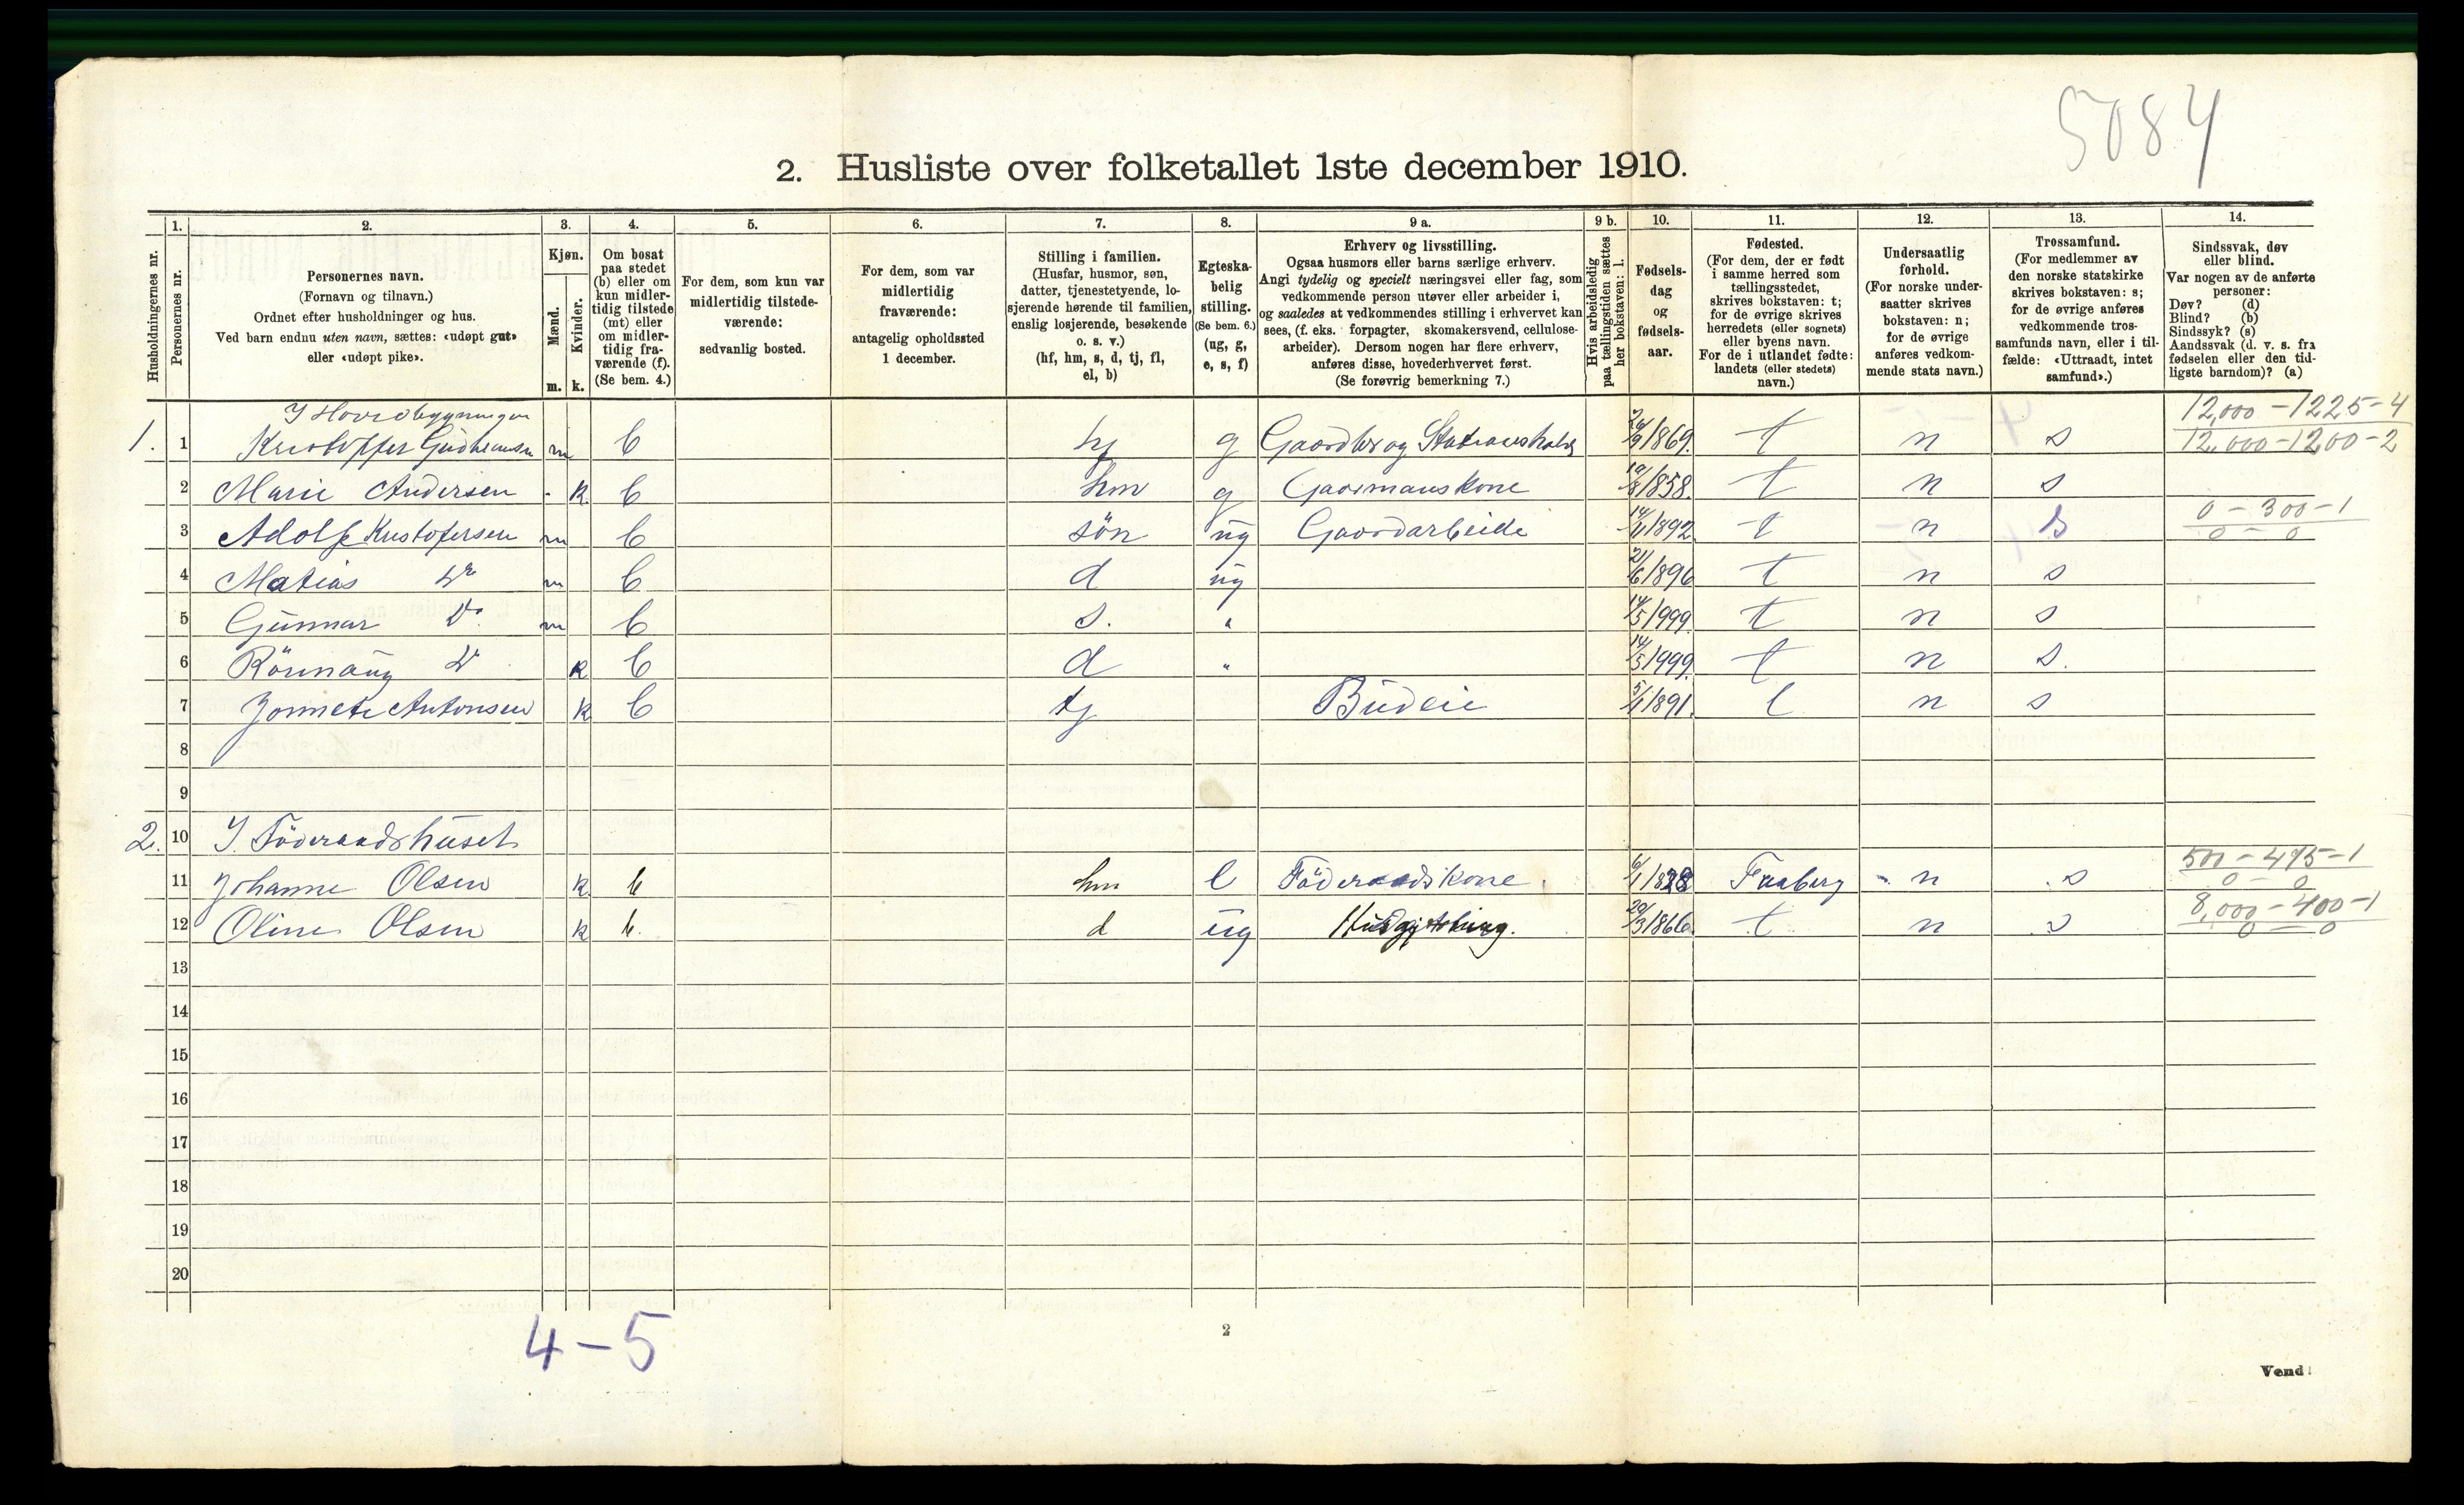 5084
2. Husliste over folketallet 1ste december 1910.
Husholdningernes nr.
1.
Personernes nr.
2.
Personernes navn.
(Fornavn og tilnavn.)
Ordnet efter husholdninger og hus.
Ved barn endnu uten navn, sættes: «udøpt gut»
eller «udøpt pike».
3.
Kjøn.
Mænd.
Kvinder.
m. k.
4.
Om bosat
paa stedet
(b) eller om
kun midler-
tidig tilstede
(mt) eller
om midler-
tidig fra-
værende (f).
(Se bem. 4.)
5.
For dem, som kun var
midlertidig tilstede-
værende:
sedvanlig bosted.
6.
For dem, som var
midlertidig
fraværende:
antagelig opholdssted
1 december.
7.
Stilling i familien.
(Husfar, husmor, søn,
datter, tjenestetyende, lo-
sjerende hørende til familien,
enslig losjerende, besøkende
o. s. v.)
(hf, hm, s, d, tj, fl,
el, b)
8.
Egteska-
belig
stilling.
(Se bem. 6.)
(ug, g,
e, s, f)
9 a.
Erhverv og livsstilling.
Ogsaa husmors eller barns særlige erhverv.
Angi tydelig og specielt næringsvei eller fag, som
vedkommende person utøver eller arbeider i,
og saaledes at vedkommendes stilling i erhvervet kan
sees, (f. eks. forpagter, skomakersvend, cellulose-
arbeider). Dersom nogen har flere erhverv,
anføres disse, hovederhvervet først.
(Se forøvrig bemerkning 7.)
9 b.
Hvis arbeidsledig
paa tællingstiden sættes
her bokstaven: l.
10.
Fødsels-
dag
og
fødsels-
aar.
11.
Fødested.
(For dem, der er født
i samme herred som
tællingsstedet,
skrives bokstaven: t;
for de øvrige skrives
herredets (eller sognets)
eller byens navn.
For de i utlandet fødte:
landets (eller stedets)
navn.)
12.
Undersaatlig
forhold.
(For norske under-
saatter skrives
bokstaven: n;
for de øvrige
anføres vedkom-
mende stats navn.)
13.
Trossamfund.
(For medlemmer av
den norske statskirke
skrives bokstaven: s;
for de øvrige anføres
vedkommende tros-
samfunds navn, eller i til-
fælde: «Uttraadt, intet
samfund».)
14.
Sindssvak, døv
eller blind.
Var nogen av de anførte
personer:
Døv? (d)
Blind? (b)
Sindssyk? (s)
Aandssvak (d. v. s. fra
fødselen eller den tid-
ligste barndom)? (a)
I Hovedbygningen 12,000 - 1225 - 4
1. 1 Kristoffer m b hf g 24/9 1869. t n s 12,000 - 1200 - 2
2 Marie Andersen - k b hm g Gaarmanskone 19/8 1858. t n s
3 Adolf Kristofersen m b sön ug Gaardarbeide 14/11 1892. t n s 0 - 300 - 1
0 - 0
4 Matias Do m b d ug 21/6 1896 t n s
5 Gunnar Do. m b s. " 14/5 1999. t n s
6 Rönnaug Do k b d " 14/5 1999. t n s.
7 Antonsen k b tj Budeie 5/1 1891. t n s
8
9
2. 10 I Föderaadshuset
500 - 475 - 1
11 Johanne Olsen k b hm e Föderaadskone. 6/1 1828 Faaberg n s 0 - 0
8,000 - 400 - 1
12 Oline Olsen k b. d ug 29/3 1866. t n s 0 - 0
13
14
15
16
17
18
19
20
4 - 5
2
Vend!